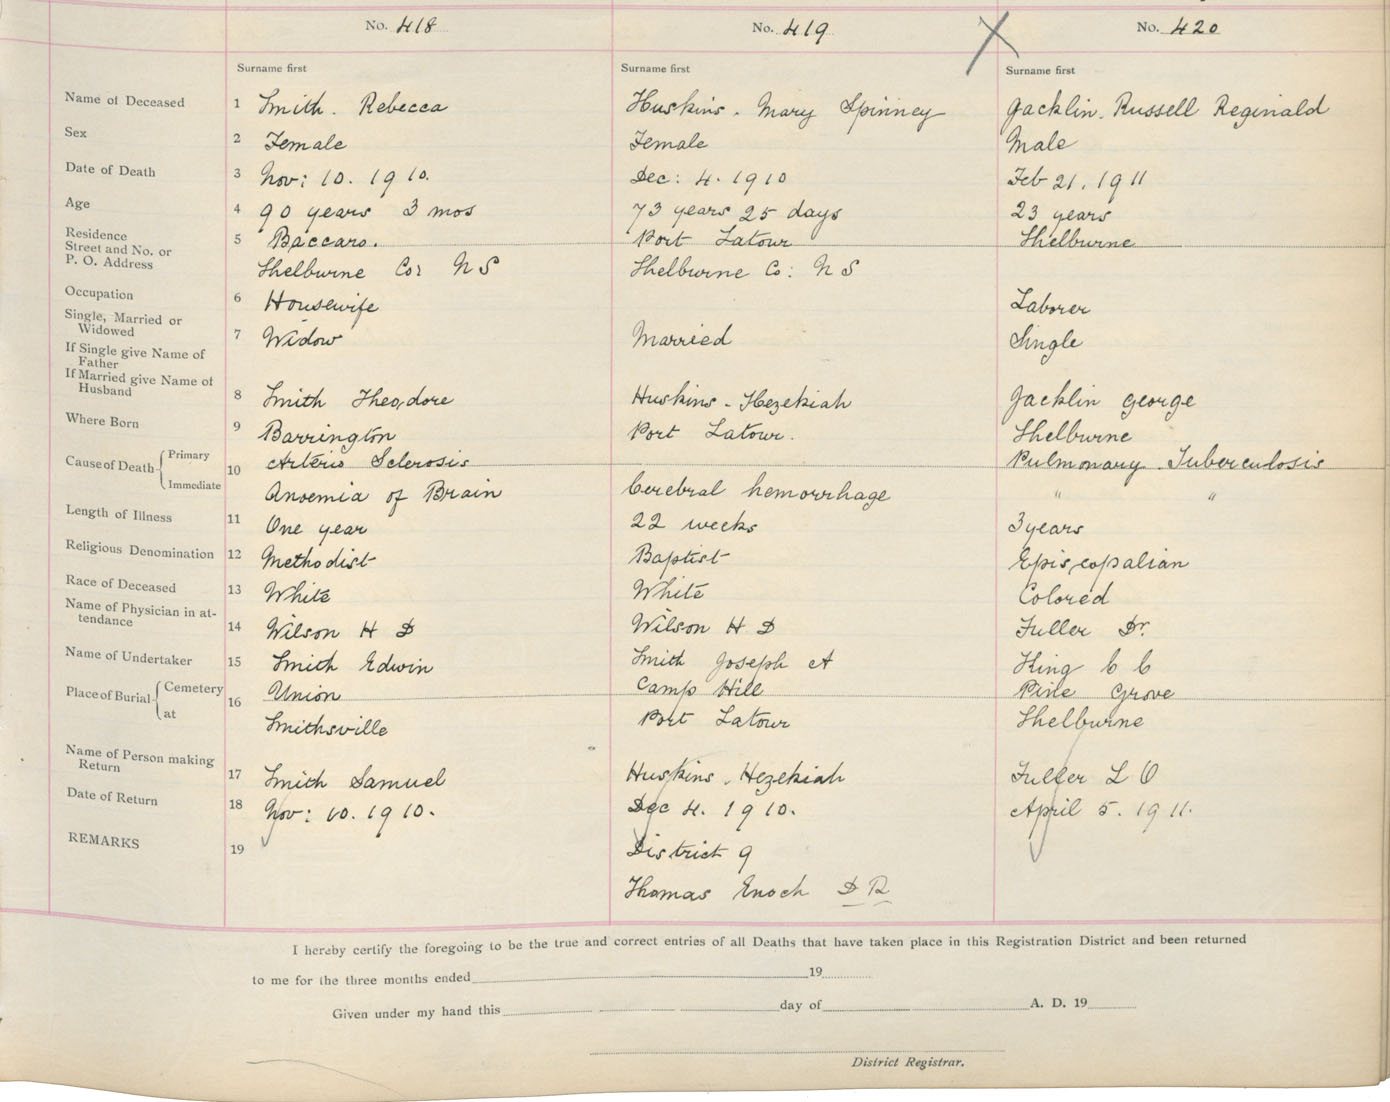 No. 418 No. 419 No. 420
Surname first Surname first Surname first
Name of Deceased 1 Smith. Rebecca Huskins. Mary Spinney Jacklin. Russell Reginald
Sex 2 Female Female Male
Date of Death 3 Nov: 10. 1910. Dec: 4. 1910 Feb 21. 1911
Age 4 90 years 3 mos 73 years 25 days 23 years
Residence
Street and No. or 5 Baccaro. Port Latour Shelburne
P. O. Address Shelburne Co: N S Shelburne Co: N S
Occupation 6 Housewife Laborer
Single, Married or
Widowed 7 Widow Married Single
If Single give Name of
Father
If Married give Name of
Husband 8 Smith Theodore Huskins. Hezekiah Jacklin George
Where Born 9 Barrington Port Latour. Shelburne
Cause of Death Primary 10 Arterio Sclerosis Pulmonary Tuberculosis
Immediate Anoemia of Brain Cerebral hemorrhage " "
Length of Illness 11 One year 22 weeks 3 years
Religious Denomination 12 Methodist Baptist Episcopalian
Race of Deceased 13 White White Colored
Name of Physician in at-
tendance 14 Wilson H D Wilson H D Fuller Dr.
Name of Undertaker 15 Smith Edwin Smith Joseph A King C C
Place of Burial Cemetery 16 Union Camp Hill Pine Grove
at Smithsville Port Latour Shelburne
Name of Person making
Return 17 Smith Samuel Huskins. Hezekiah Fuller L O
Date of Return 18 Nov: 10. 1910. Dec 4. 1910. April 5. 1911.
REMARKS 19 District 9
Thomas Enoch D R
I hereby certify the foregoing to be the true and correct entries of all Deaths that have taken place in this Registration District and been returned
to me for the three months ended 19
Given under my hand this day of A. D. 19
District Registrar.